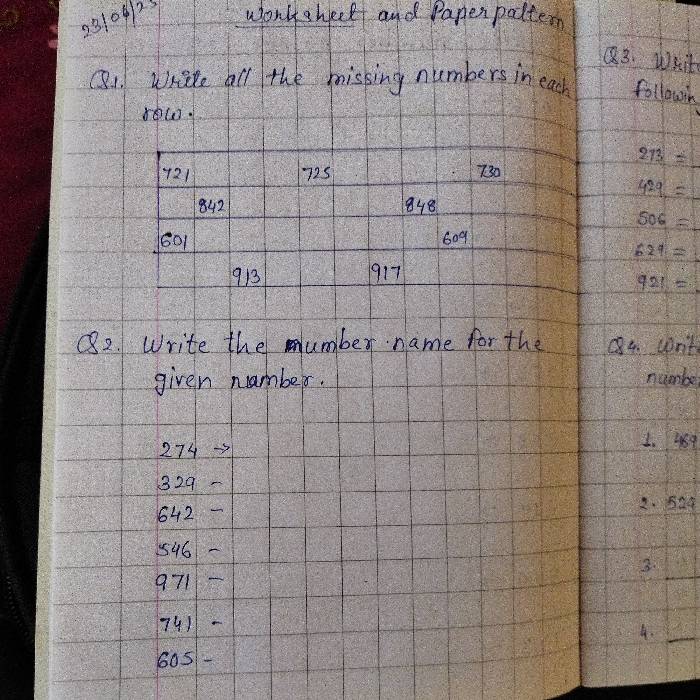 23/06/25
Worksheet and Paper pattern
Q1. Write all the missing numbers in each
row.
721 725 730
842 848
601 609
913 917
Q2. Write the number name for the
given number.
274 →
329 -
642 -
546 -
971 -
741 -
605 -
Q3. Write
following
273 =
429 =
506 =
629 =
921 =
Q4. Write
number
1. 469
2. 529
3.
4.